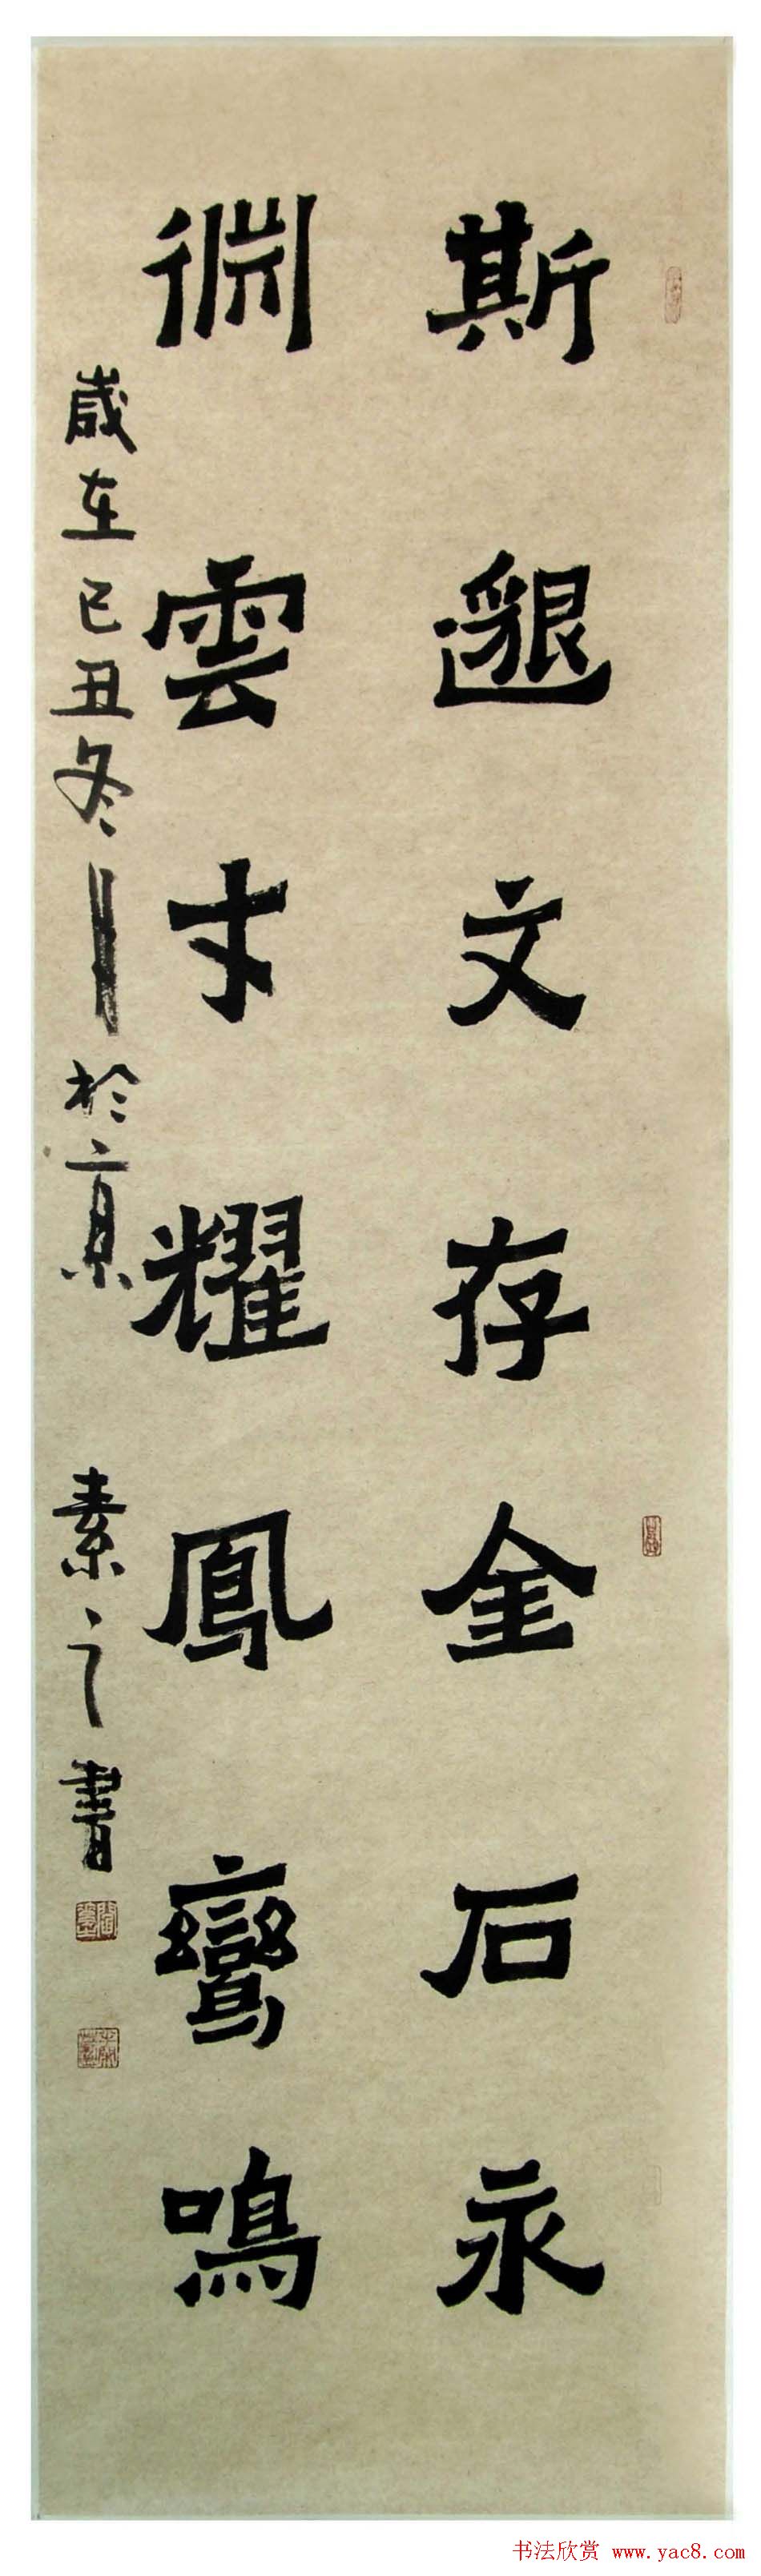 斯邈文存金石永
淵雲才耀鳳鸞鳴
歲在己丑冬於京 素之書
书法欣赏 www.yac8.com